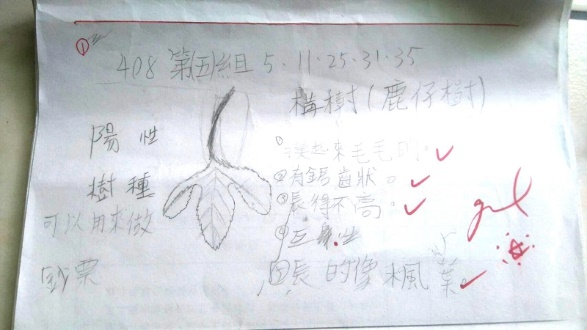 ①
408 第(五)組 5.11.25.31.35
構樹(鹿仔樹)
陽性
樹種
可以用來做
鈔票
摸起來毛毛的。
②有鋸齒狀。
③長得不高。
④互生
⑤長的像楓葉。